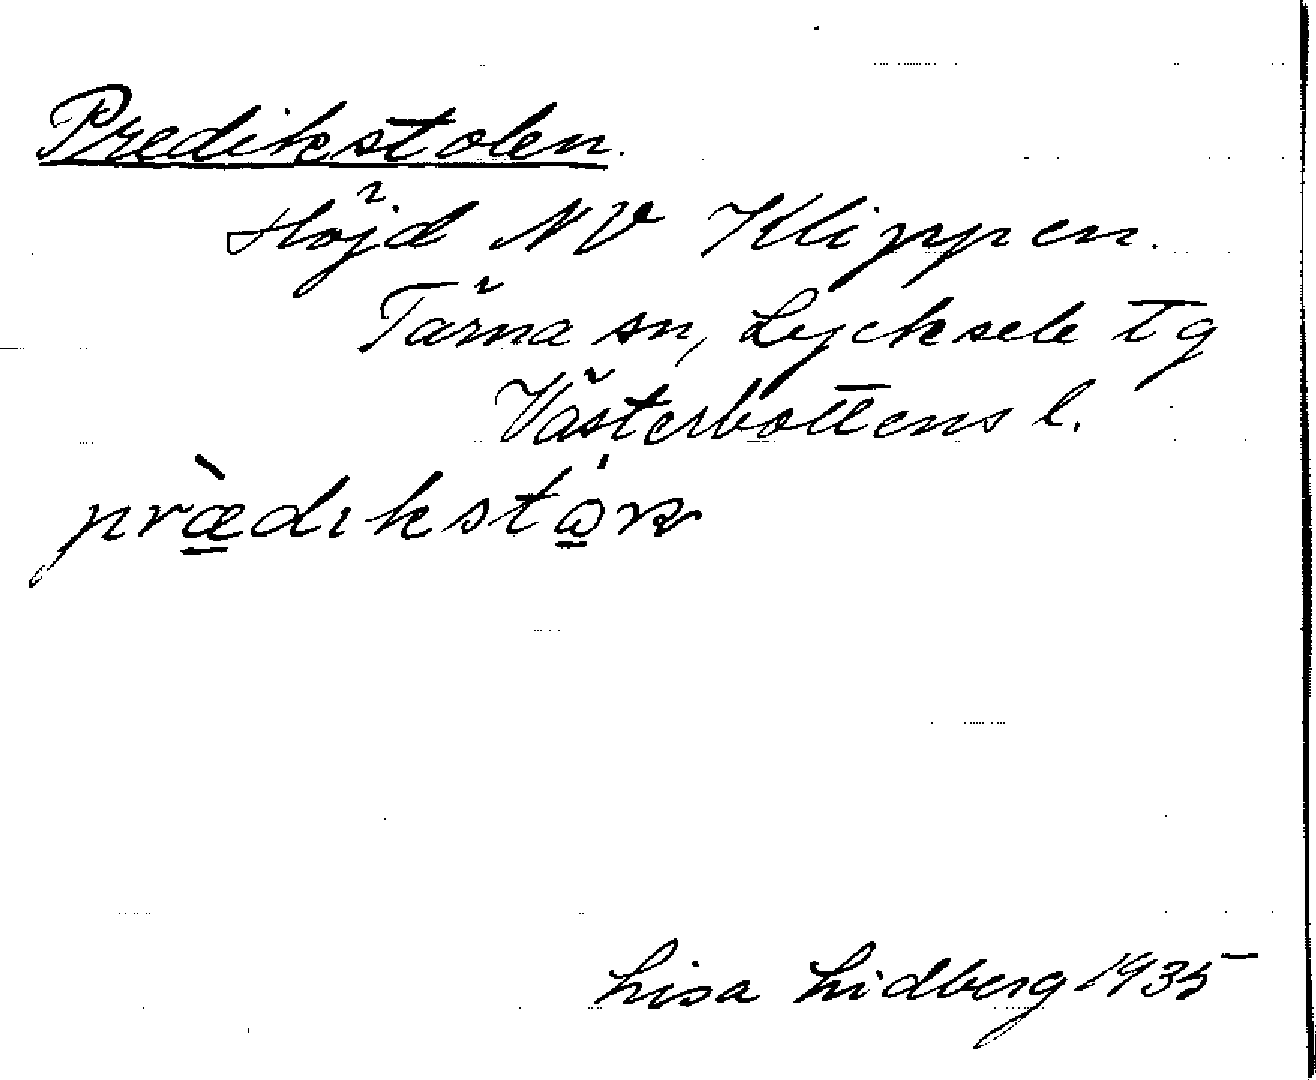 Predikstolen.
Höjd NV Klippen.
Tärna sn, Lycksele tg
Västerbottens l.
Lisa Lidberg 1935